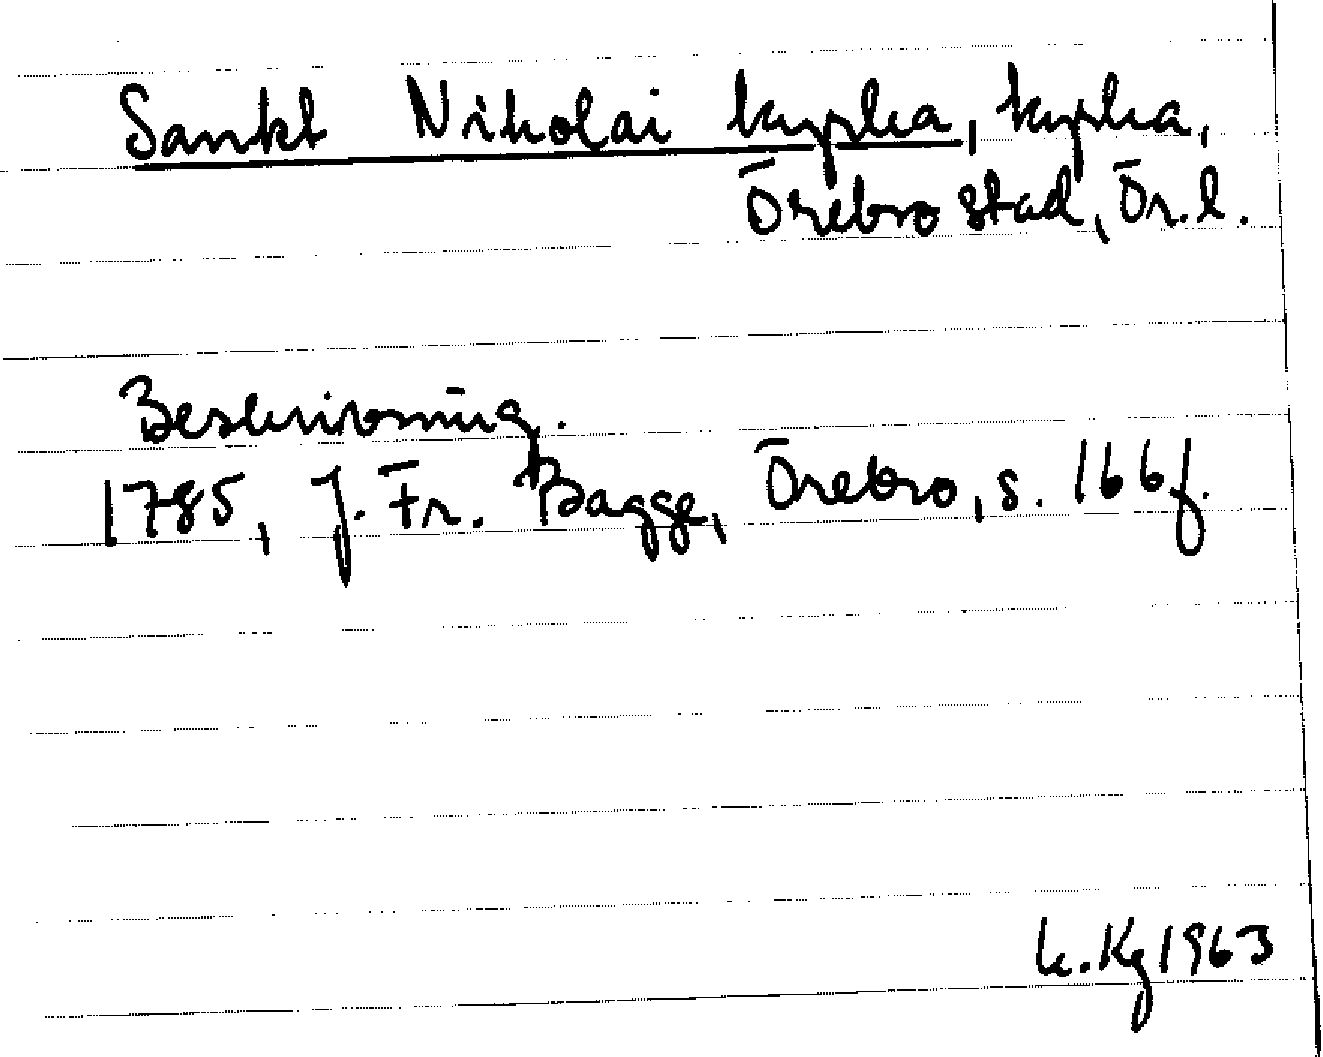 Sankt Nikolai kyrka, kyrka,
Örebro stad, Ör. l.
Beskrivning.
1785, J. Fr. Bagge, Örebro, s. 166f.
k. Kg 1963